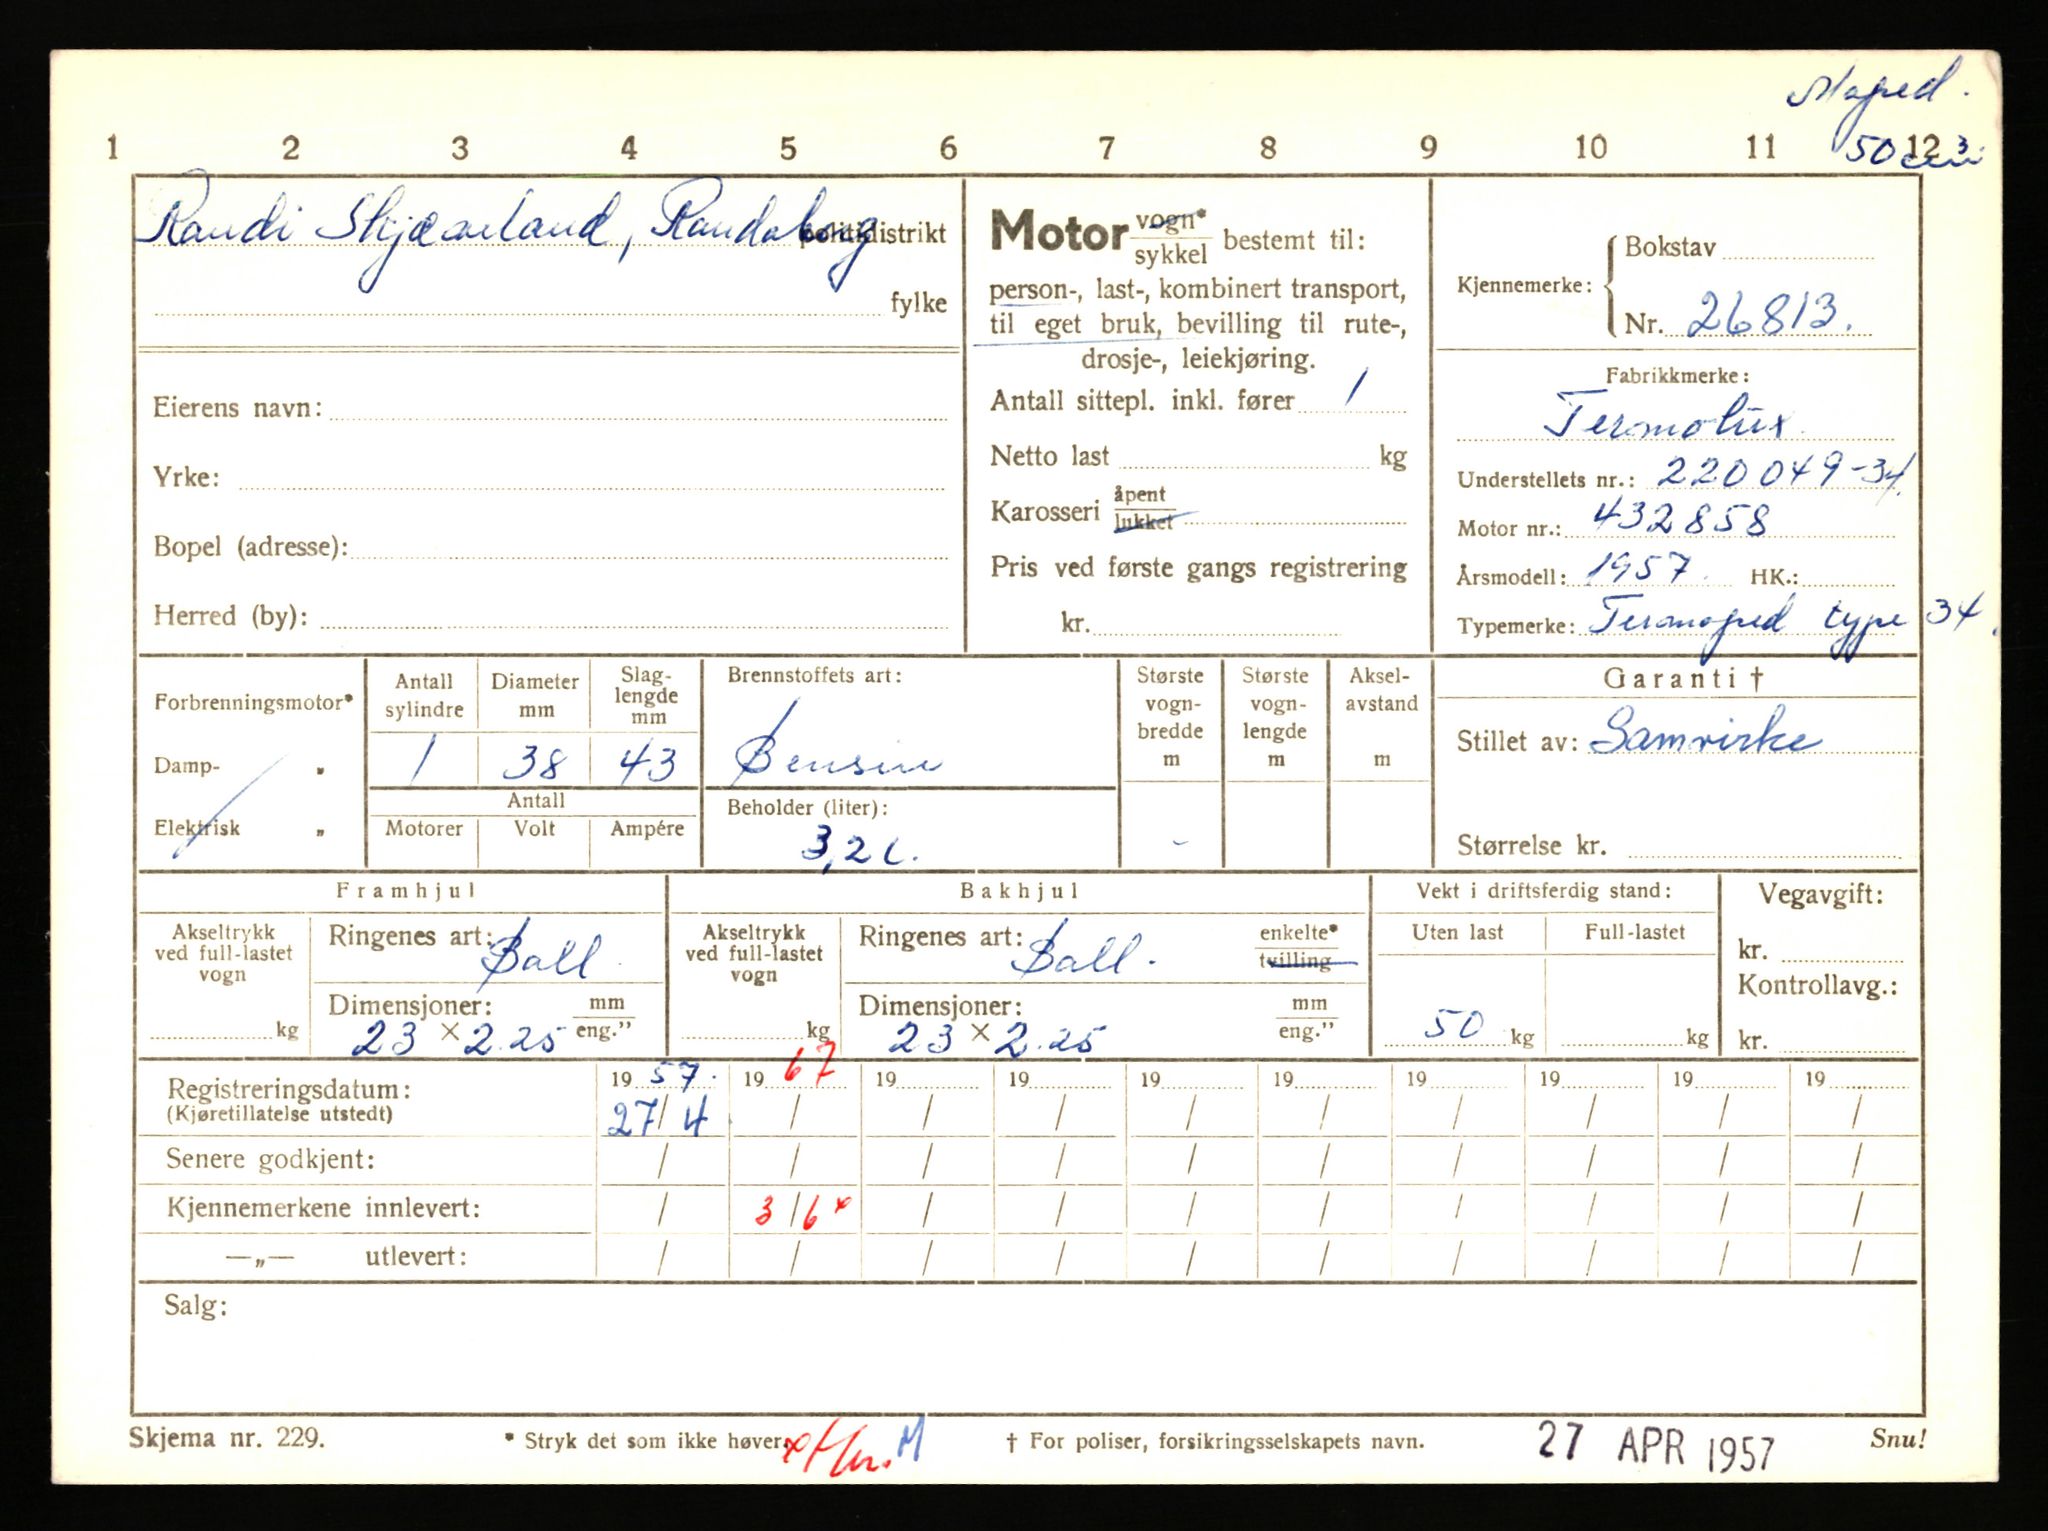 Moped.
1 2 3 4 5 6 7 8 9 10 11 12
50 cm3
Randi Skjæveland, Randaberg politidistrikt
fylke
Eierens navn:
Yrke:
Bopel (adresse):
Herred (by):
Motor vogn*
sykkel bestemt til:
person-, last-, kombinert transport,
til eget bruk, bevilling til rute-,
drosje-, leiekjøring.
Antall sittepl. inkl. fører 1
Netto last kg
Karosseri åpent
lukket
Pris ved første gangs registrering
kr.
Kjennemerke: Bokstav
Nr. 26813.
Fabrikkmerke:
Termolux
Understellets nr.: 220049-34.
Motor nr.: 432858
Årsmodell: 1957. HK.:
Typemerke: Termoped type 34.
Forbrenningsmotor*
Damp- "
Elektrisk "
Antall sylindre
1
Diameter mm
38
Slag-
lengde
mm
43
Antall
Motorer Volt Ampére
Brennstoffets art:
Bensin
Beholder (liter):
3,2 l.
Største
vogn-
bredde
m
-
Største
vogn-
lengde
m
Aksel-
avstand
m
Garanti †
Stillet av: Samvirke
Størrelse kr.
Framhjul
Akseltrykk
ved full-lastet
vogn
kg
Ringenes art: Ball.
Dimensjoner: mm
eng."
23 x 2.25
Bakhjul
Akseltrykk
ved full-lastet
vogn
kg
Ringenes art: Ball. enkelte*
tvilling
Dimensjoner: mm
eng."
23 x 2.25
Vekt i driftsferdig stand:
Uten last Full-lastet
50 kg kg
Vegavgift:
kr.
Kontrollavg.:
kr.
Registreringsdatum: 19 57. 19 67 19 19 19 19 19 19 19 19
(Kjøretillatelse utstedt) 27/4 / / / / / / / / /
Senere godkjent: / / / / / / / / / /
Kjennemerkene innlevert: / 3/6 x / / / / / / / /
—„— utlevert: / / / / / / / / / /
Salg:
Skjema nr. 229. * Stryk det som ikke høver. † For poliser, forsikringsselskapets navn. 27 APR 1957 Snu!